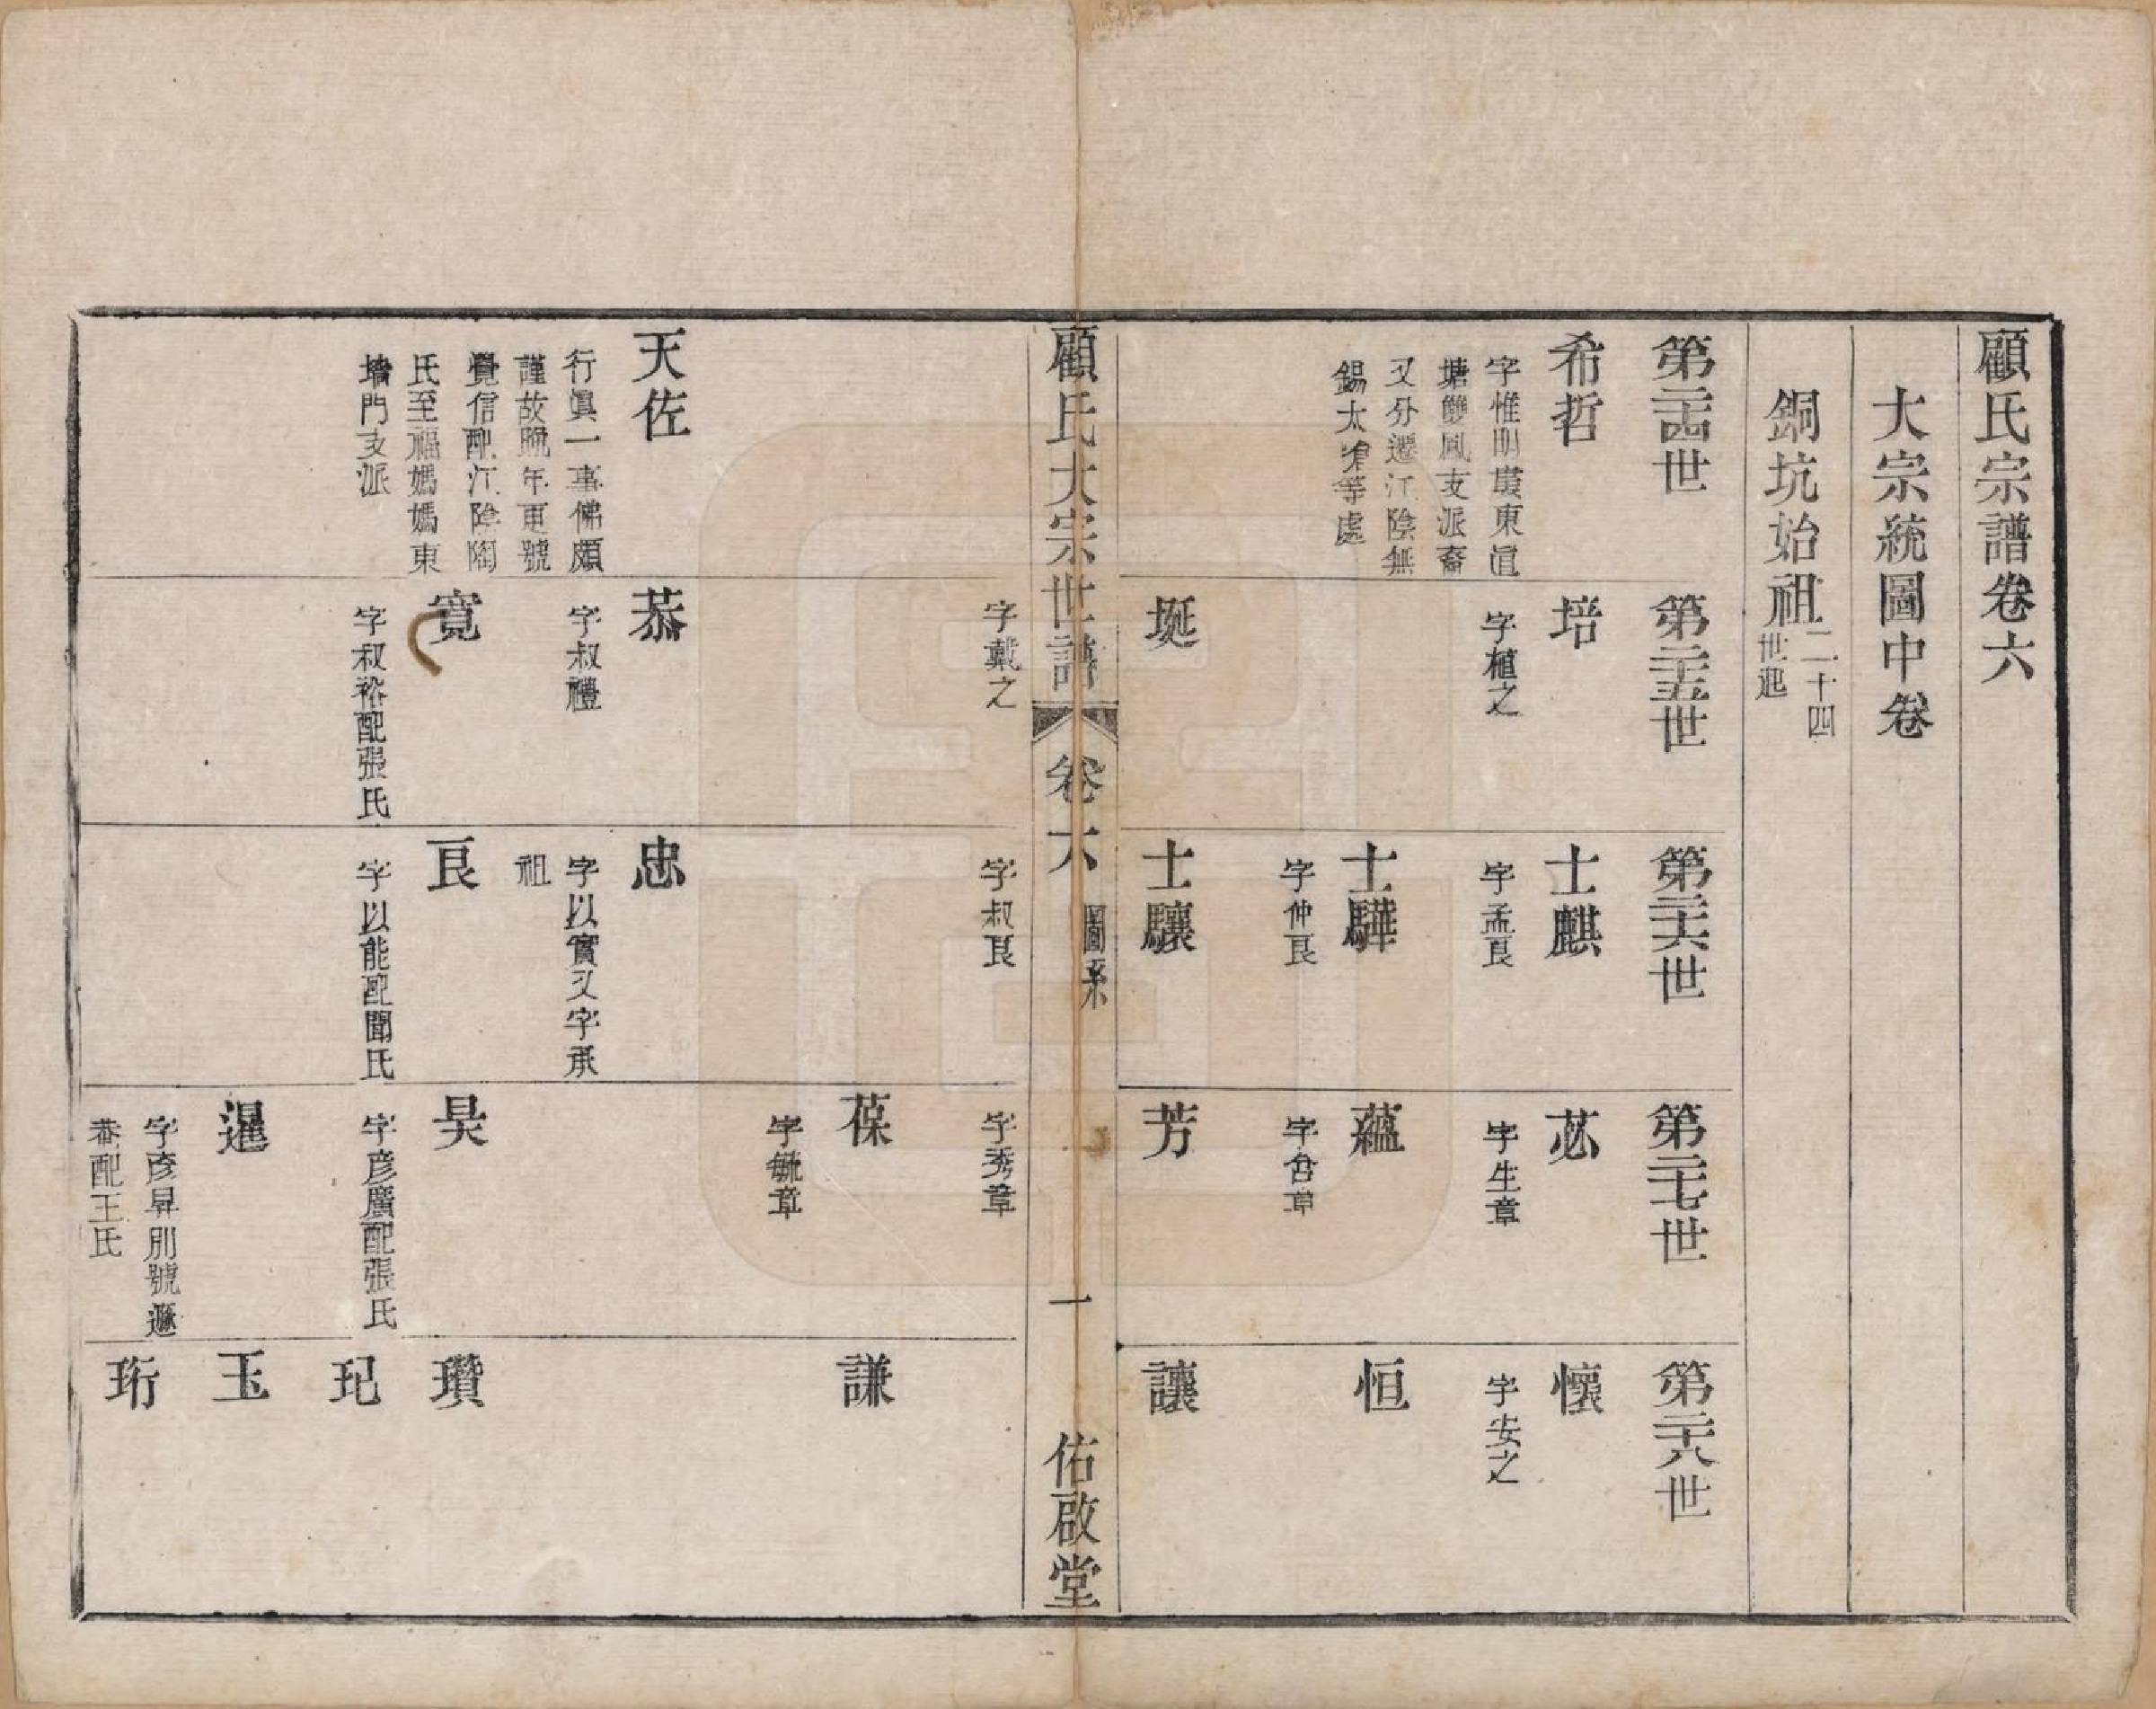 顧氏宗譜卷六
大宗統圖中卷
銅坑始祖二十四世起
第二十四世
第二十五世
第二十六世
第二十七世
第二十八世
希哲
字惟明廣東道
塘雙鳳支派裔
又分遷江陰無
錫太滄等處
培
字植之
埏
士麒
字孟良
士驊
字仲良
士驤
苾
字生章
蘊
字含章
芳
懷
字安之
恒
讓
顧氏大宗世譜
卷六
圖系
一
佑啟堂
字戴之
字叔良
字秀章
葆
字毓章
謙
天佐
行眞一事佛頗
謹故晩年更號
覺信配江陰陶
氏至福媽媽東
墻門支派
恭
字叔禮
寛
字叔裕配張氏
忠
字以實又字承
祖
良
字以能配聞氏
昊
字彦廣配張氏
暹
字彦昇別號遯
菴配王氏
瓚
玘
玉
珩